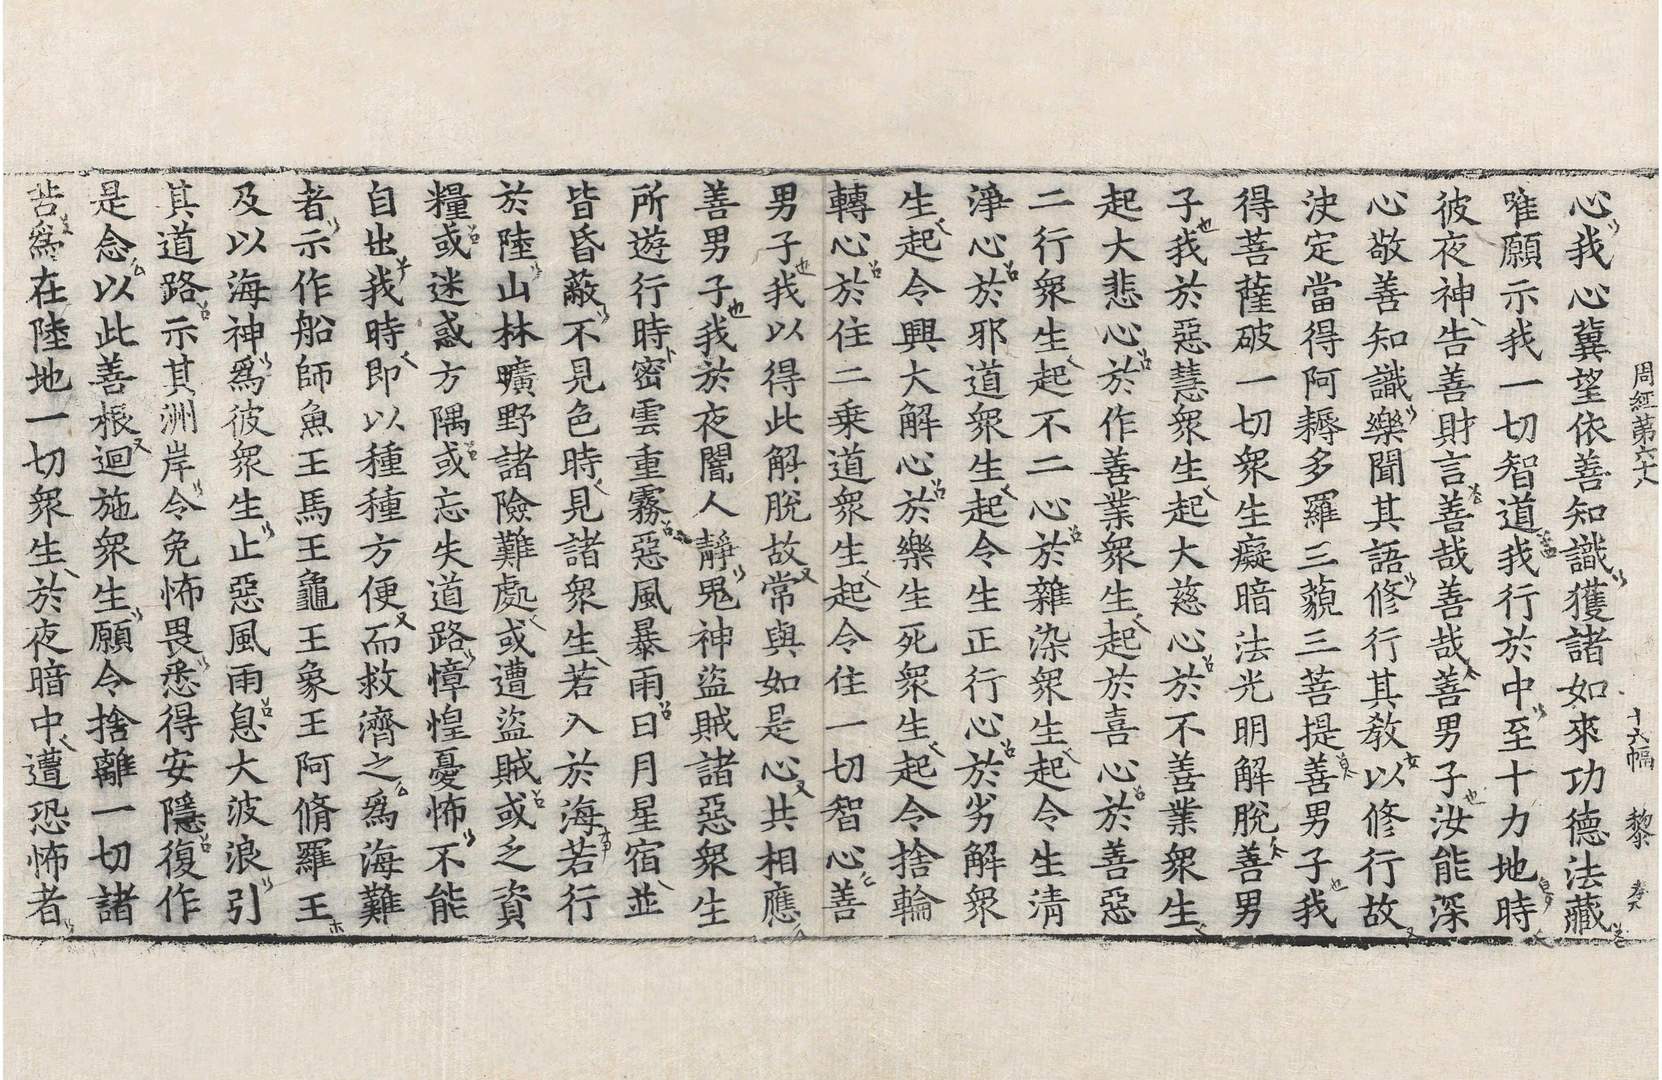 周經第六十八　十六幅　黎
心我心冀望依善知識獲諸如來功德法藏
唯願示我一切智道我行於中至十力地時
彼夜神告善財言善哉善哉善男子汝能深
心敬善知識樂聞其語修行其教以修行故
決定當得阿耨多羅三藐三菩提善男子我
得菩薩破一切衆生癡暗法光明解脫善男
子我於惡慧衆生起大慈心於不善業衆生
起大悲心於作善業衆生起於喜心於善惡
二行衆生起不二心於雜染衆生起令生清
淨心於邪道衆生起令生正行心於劣解衆
生起令興大解心於樂生死衆生起令捨輪
轉心於住二乗道衆生起令住一切智心善
男子我以得此解脫故常與如是心共相應
善男子我於夜闇人靜鬼神盜賊諸惡衆生
所遊行時密雲重霧惡風暴雨日月星宿並
皆昏蔽不見色時見諸衆生若入於海若行
於陸山林曠野諸險難處或遭盜賊或乏資
糧或迷惑方隅或忘失道路慞惶憂怖不能
自出我時即以種種方便而救濟之爲海難
者示作船師魚王馬王龜王象王阿脩羅王
及以海神爲彼衆生止惡風雨息大波浪引
其道路示其洲岸令免怖畏悉得安隱復作
是念以此善根迴施衆生願令捨離一切諸
苦爲在陸地一切衆生於夜暗中遭恐怖者